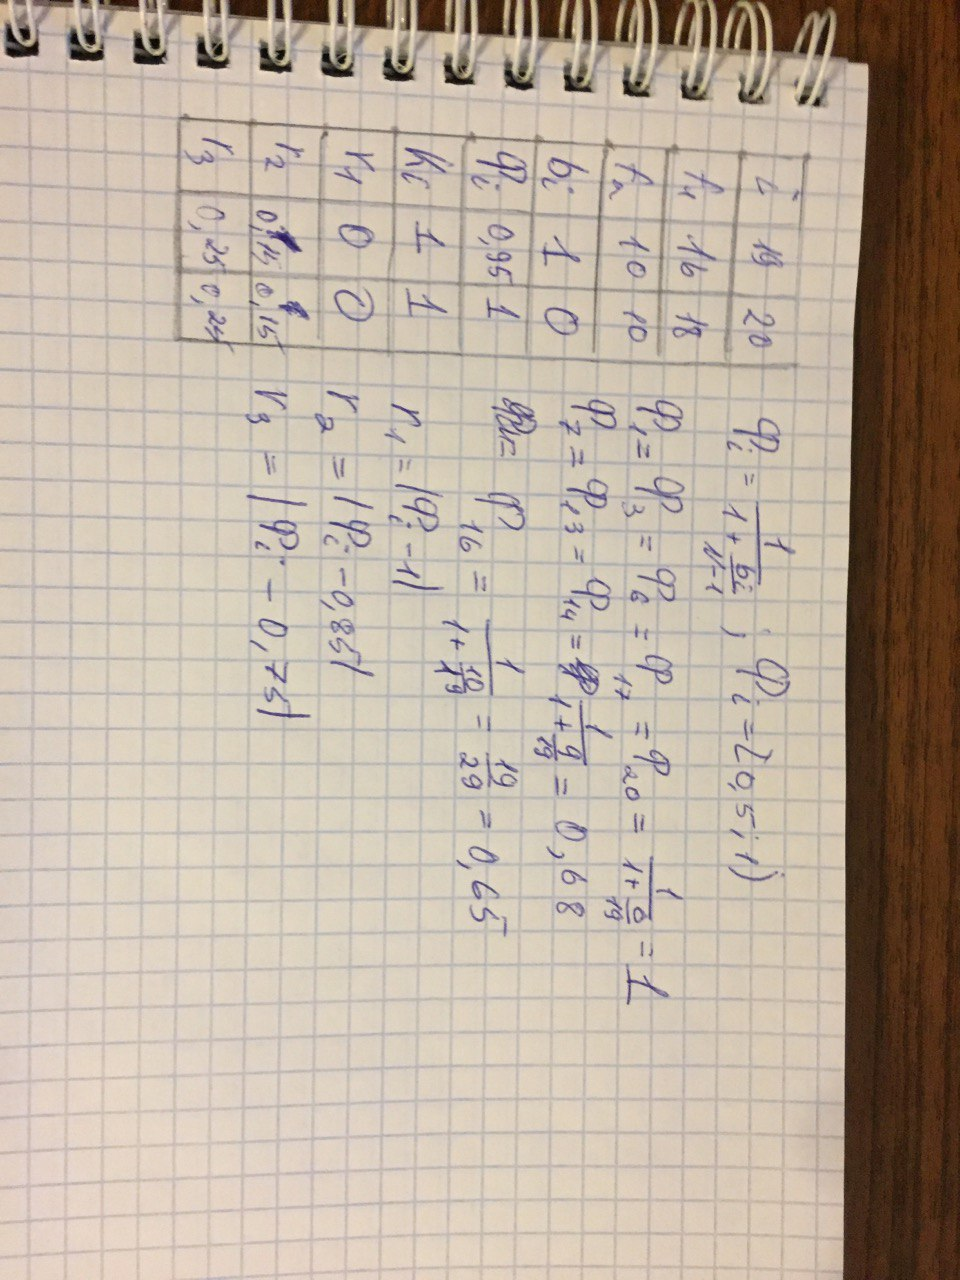 i 19 20
f₁ 16 18
f₂ 10 10
bᵢ 1 0
φᵢ 0,95 1
Kᵢ 1 1
r₁ 0 0
r₂ 0,15 0,15
r₃ 0,25 0,25
φᵢ = 1/(1+bᵢ/(N-1)) ; φᵢ = [0,5;1)
φ₁ = φ₃ = φ₆ = φ₁₇ = φ₂₀ = 1/(1+0/19) = 1
φ₇ = φ₁₃ = φ₁₄ = 1/(1+9/19) = 0,68
φ₁₆ = 1/(1+10/19) = 19/29 = 0,65
r₁ = |φᵢ - 1|
r₂ = |φᵢ - 0,85|
r₃ = |φᵢ - 0,75|